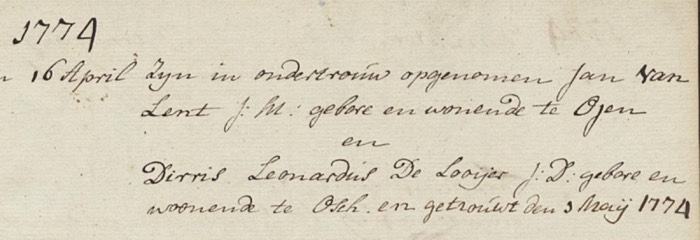 1774
16 April Zyn in ondertrouw opgenomen Jan van
Lent J: M: gebore en wonende te Ojen
en
Dirris Leonardus De Looijer J: D: gebore en
woonende te Osch. en getrouwt den 3 Maij 1774